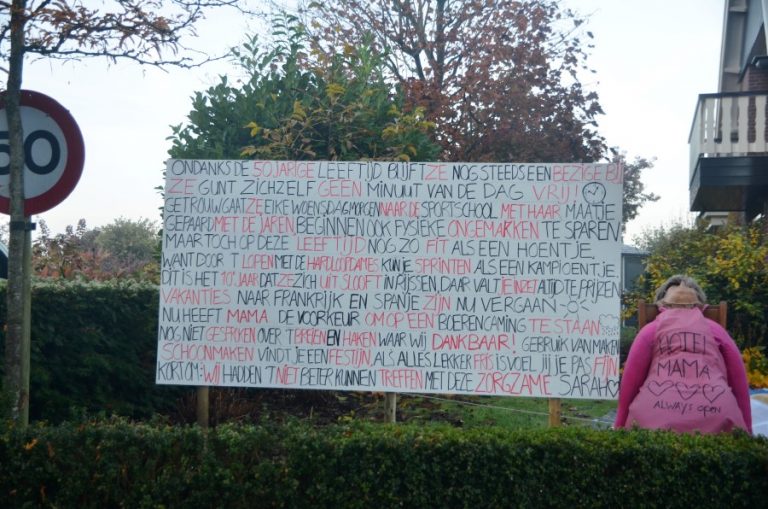 50
ONDANKS DE 50 JARIGE LEEFTIJD BLIJFT ZE NOG STEEDS EEN BEZIGE BIJ
ZE GUNT ZICHZELF GEEN MINUUT VAN DE DAG VRIJ!
GETROUW GAAT ZE ELKE WOENSDAGMORGEN NAAR DE SPORTSCHOOL MET HAAR MAATJE.
GEPAARD MET DE JAREN, BEGINNEN OOK FYSIEKE ONGEMAKKEN TE SPAREN
MAAR TOCH OP DEZE LEEFTIJD NOG ZO FIT ALS EEN HOENTJE,
WANT DOOR 'T LOPEN MET DE HARDLOOPDAMES KUN JE SPRINTEN ALS EEN KAMPIOENTJE.
DIT IS HET 10e JAAR DAT ZE ZICH UIT SLOOFT IN RIJSSEN DAAR VALT JE INZET ALTIJD TE PRIJZEN
VAKANTIES NAAR FRANKRIJK EN SPANJE ZIJN NU VERGAAN
NU HEEFT MAMA DE VOORKEUR OM OP EEN BOERENCAMING TE STAAN
NOG NIET GESPROKEN OVER 'T BREIEN EN HAKEN WAAR WIJ DANKBAAR! GEBRUIK VAN MAKEN
SCHOONMAKEN VINDT JE EEN FESTIJN, ALS ALLES LEKKER FRIS IS VOEL JIJ JE PAS FIJN
KORTOM: WIJ HADDEN 'T NIET BETER KUNNEN TREFFEN MET DEZE ZORGZAME SARAH
HOTEL
MAMA
ALWAYS OPEN